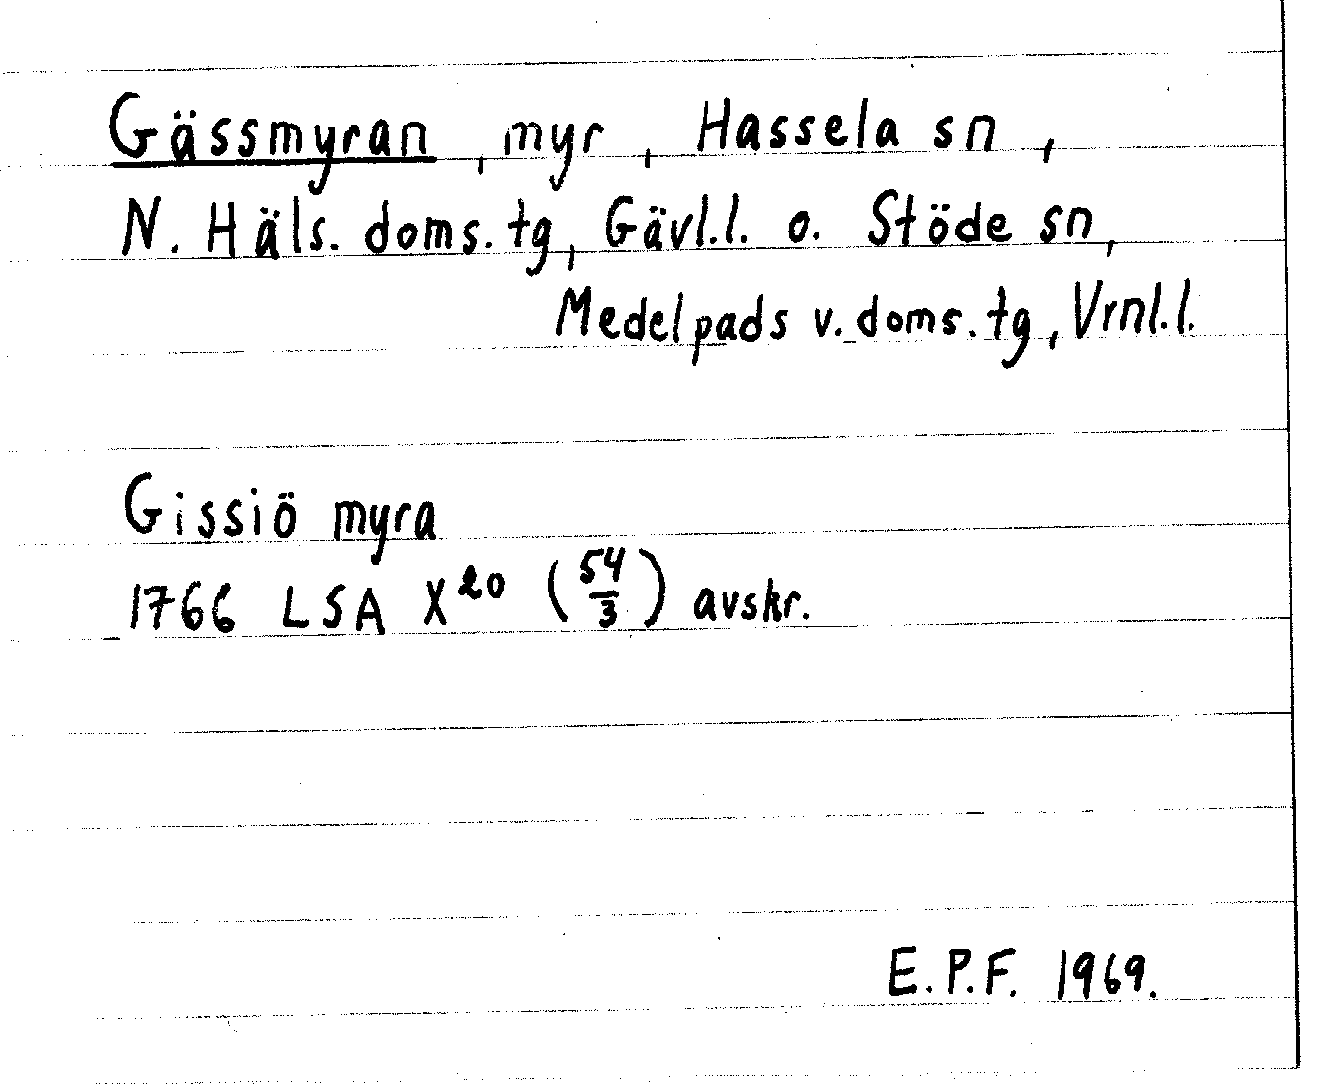 Gässmyran, myr, Hassela sn,
N. Häls. doms. tg, Gävl.l. o. Stöde sn,
Medelpads v. doms. tg, Vrnl.l.
Gissiö myra
1766 LSA X²⁰ (54/3) avskr.
E.P.F. 1969.